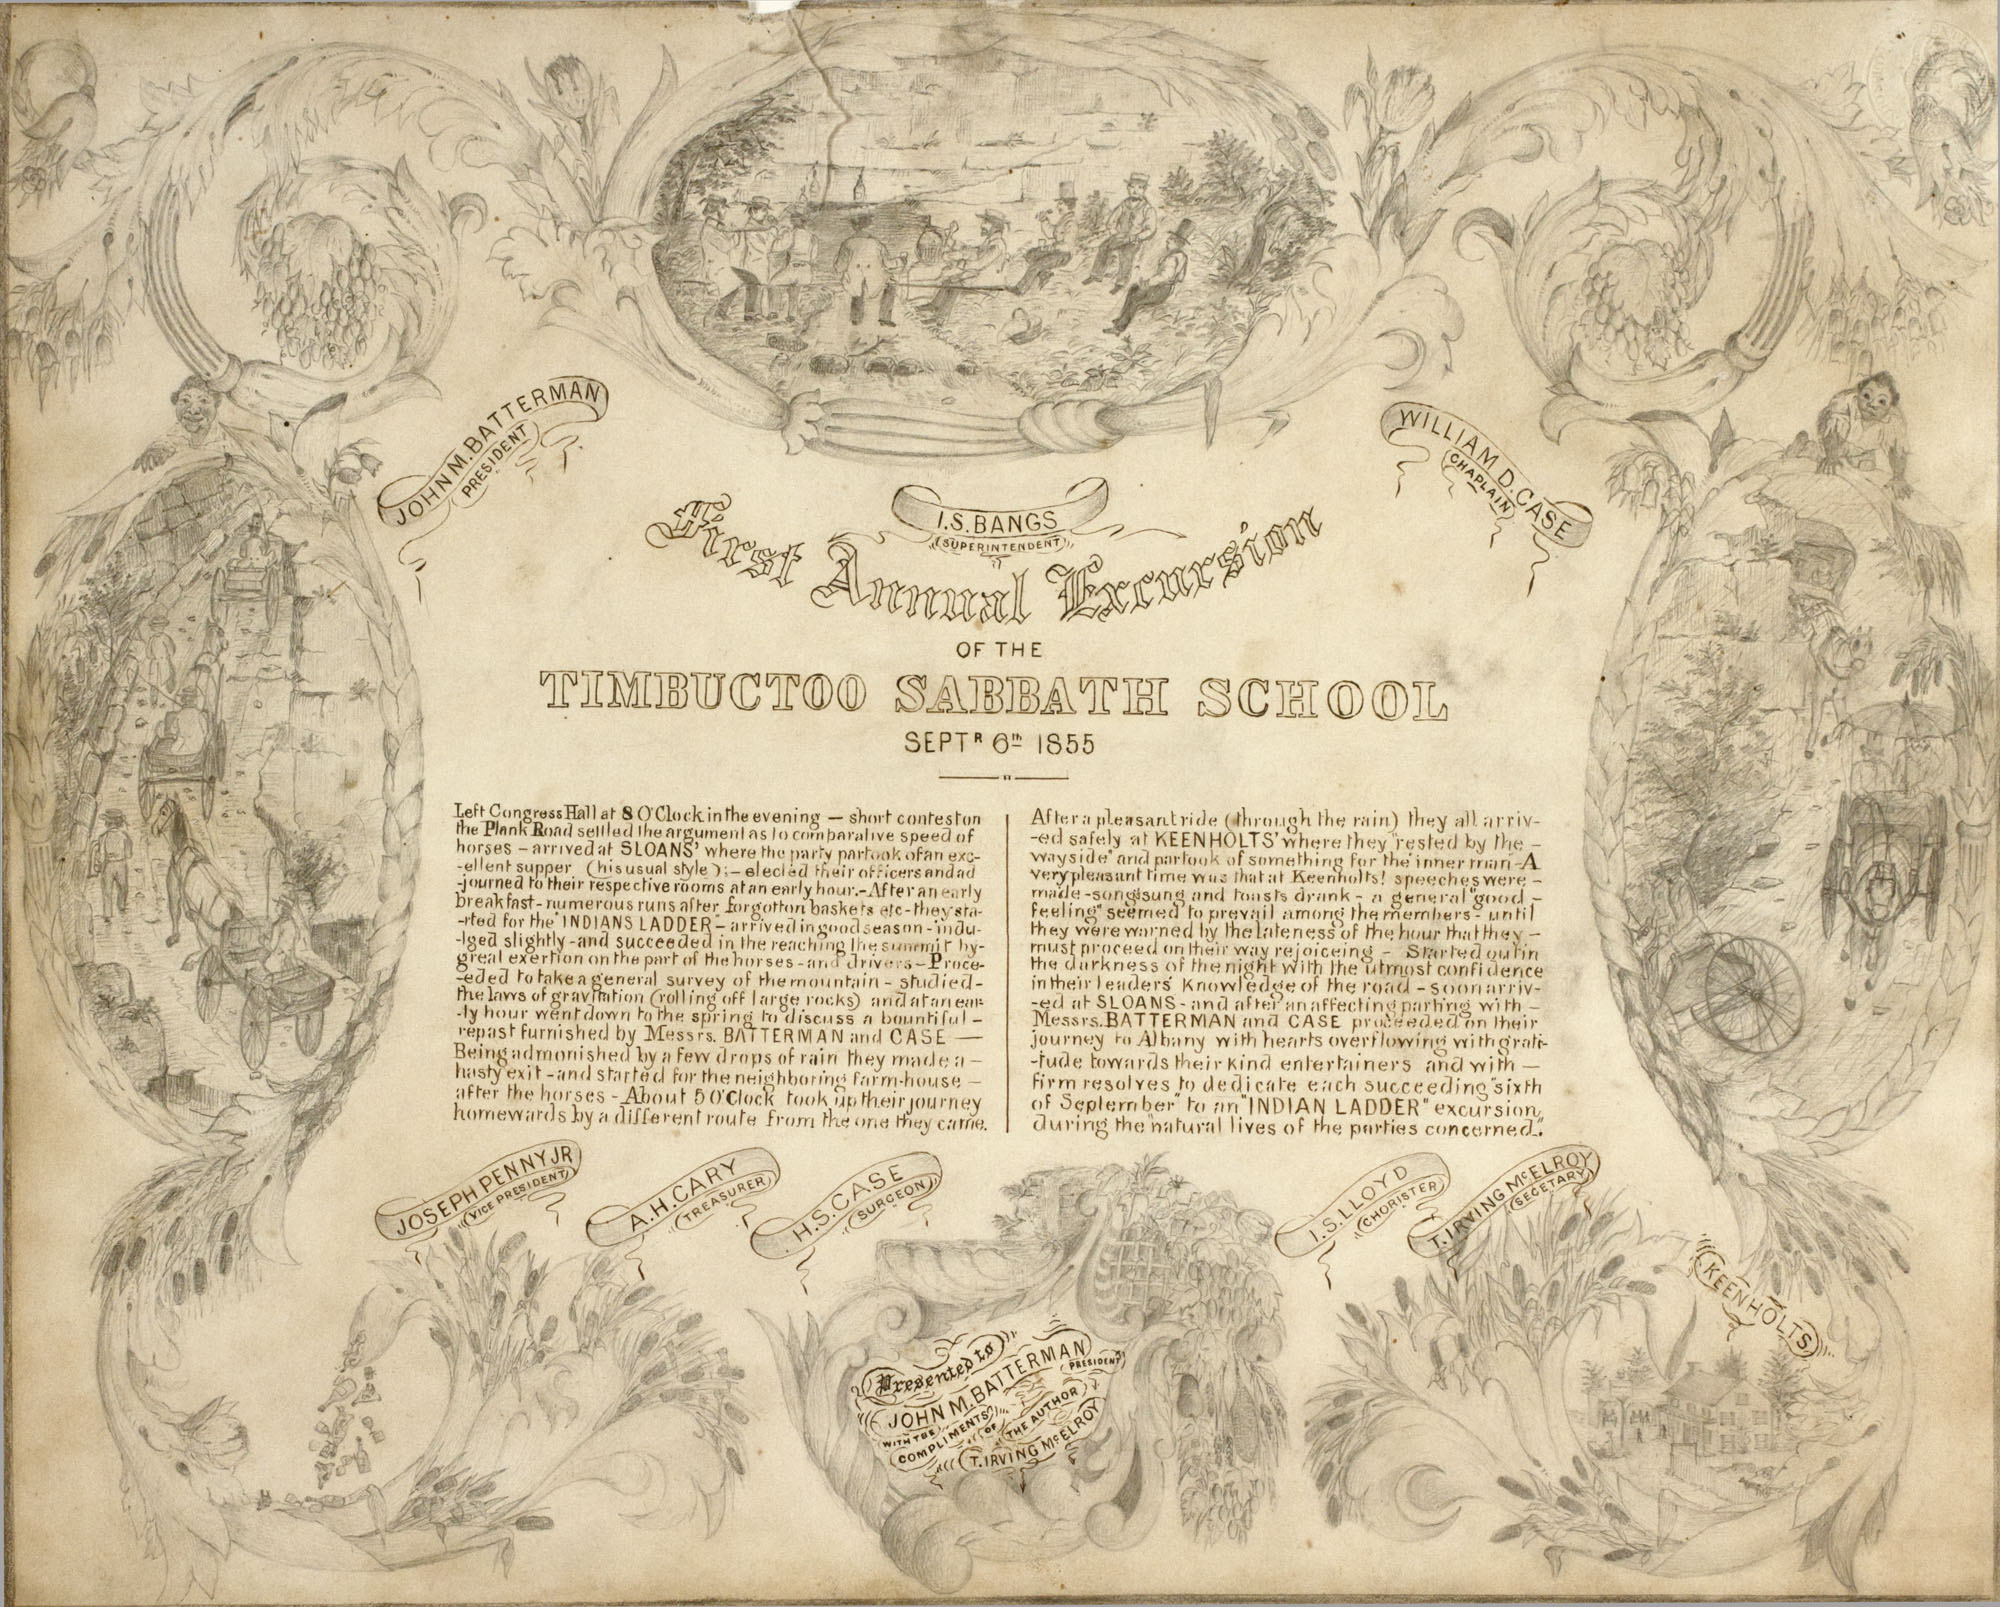 JOHN M. BATTERMAN
PRESIDENT
WILLIAM D. CASE
CHAPLAIN
I.S. BANGS
(SUPERINTENDENT)
First Annual Excursion
OF THE
TIMBUCTOO SABBATH SCHOOL
SEPTR 6th 1855
Left Congress Hall at 8 O'Clock in the evening — short contest on
the Plank Road settled the argument as to comparative speed of
horses – arrived at SLOANS' where the party partook of an exc-
-ellent supper (his usual style);– elected their officers and ad
-journed to their respective rooms at an early hour.– After an early
breakfast – numerous runs after forgotton baskets etc – they sta-
-rted for the "INDIANS LADDER" – arrived in good season – indu-
-lged slightly – and succeeded in the reaching the summit by-
great exertion on the part of the horses – and drivers – Proce-
-eded to take a general survey of the mountain – studied –
the laws of gravitation (rolling off large rocks) and at an ear-
-ly hour went down to the spring to discuss a bountiful –
repast furnished by Messrs. BATTERMAN and CASE —
Being admonished by a few drops of rain they made a –
hasty exit – and started for the neighboring farm-house –
after the horses – About 5 O'Clock took up their journey
homewards by a different route from the one they came.
After a pleasant ride (through the rain) they all arriv-
-ed safely at KEENHOLTS' where they "rested by the –
wayside" and partook of something for the inner man – A
very pleasant time was that at Keenholts! speeches were –
made – songs sung and toasts drank – a general "good –
feeling" seemed to prevail among the members – until
they were warned by the lateness of the hour that they –
must proceed on their way rejoiceing – Started out in
the darkness of the night with the utmost confidence
in their leaders' knowledge of the road – soon arriv-
-ed at SLOANS – and after an affecting parting with –
Messrs. BATTERMAN and CASE proceeded on their
journey to Albany with hearts overflowing with grati-
-tude towards their kind entertainers and with —
firm resolves to dedicate each succeeding "sixth
of September" to an "INDIAN LADDER" excursion,
during the "natural lives of the parties concerned".
JOSEPH PENNY JR
VICE PRESIDENT
A.H. CARY
(TREASURER)
H.S. CASE
(SURGEON)
I.S. LLOYD
(CHORISTER)
T. IRVING McELROY
(SECETARY)
KEENHOLTS
Presented to
JOHN M. BATTERMAN
(PRESIDENT)
WITH THE
COMPLIMENTS
OF
THE AUTHOR
T. IRVING McELROY